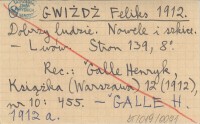 GWIŻDŻ Feliks 1912.
Dobrzy ludzie. Nowele i szkice.
– Lwów. Stron 139, 8°.
Rec.: Galle Henryk,
Książka (Warszawa) 12 (1912),
nr 10: 455. – GALLE H.
1912 a.